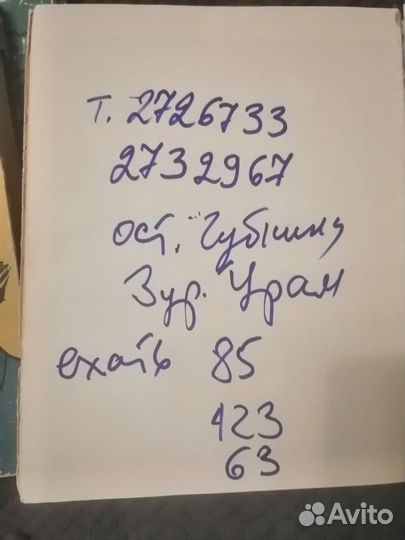 т. 2726733
2732967
ост. Губкина
Зур. Урам
ехать 85
123
63
Avito